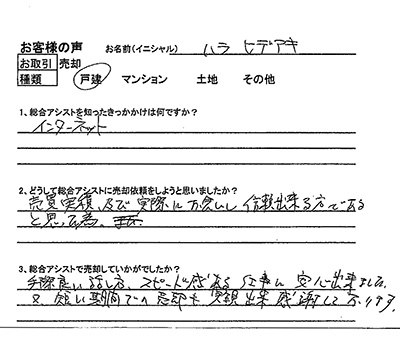 お客様の声 お名前(イニシャル) ハラ ヒデアキ
お取引 売却
種類 戸建 マンション 土地 その他
1、総合アシストを知ったきっかけは何ですか?
インターネット
2、どうして総合アシストに売却依頼をしようと思いましたか?
売買実績、及び実際にお会いし信頼出来る方である
と思った為。
3、総合アシストで売却していかがでしたか?
手際良い話し方、スピード感ある仕事に安心出来ました。
又、短い期間での売却も実現出来感謝しております。